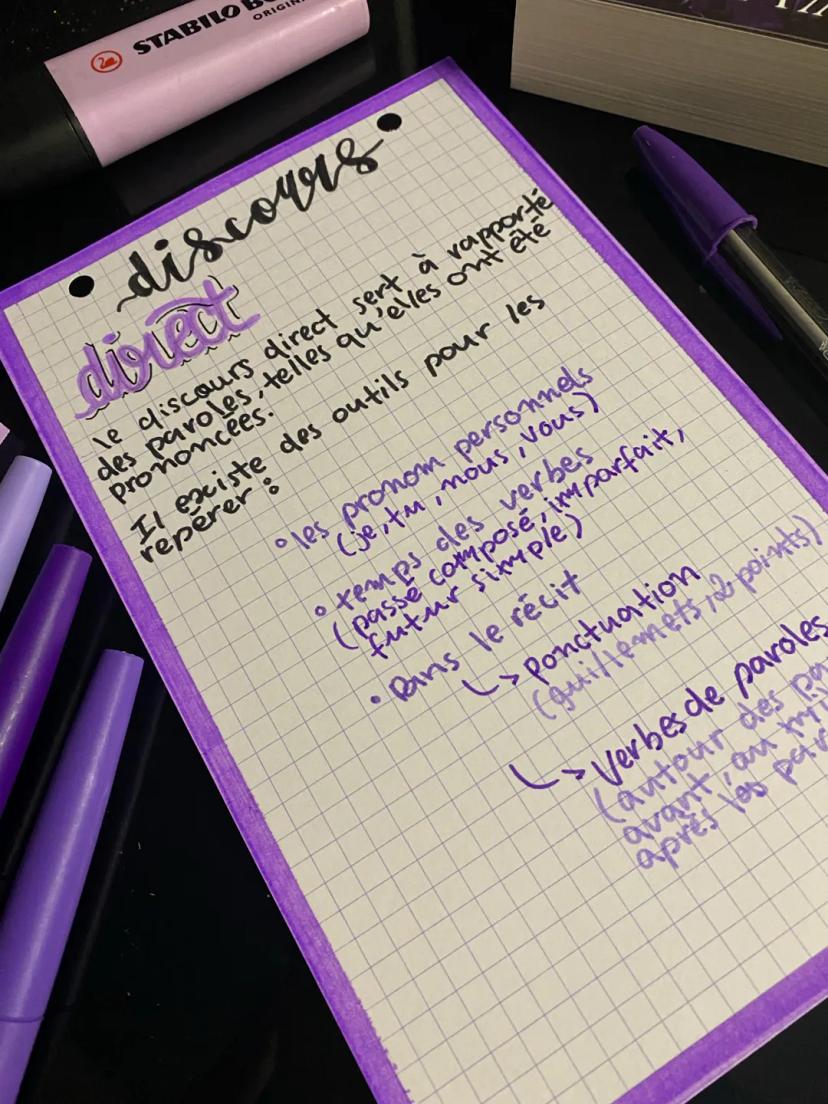 STABILO BO
ORIGIN
discours
direct
le discours direct sert à rapporté
des paroles, telles qu'elles ont été
prononcées.
Il existe des outils pour les
repérer :
• les pronom personnels
(je, tu, nous, vous)
• temps des verbes
(passé composé, imparfait,
futur simple)
• Dans le récit
↳ ponctuation
(guillemets, 2 points)
↳ verbes de paroles
(autour des pa
avant, au mi
après les par